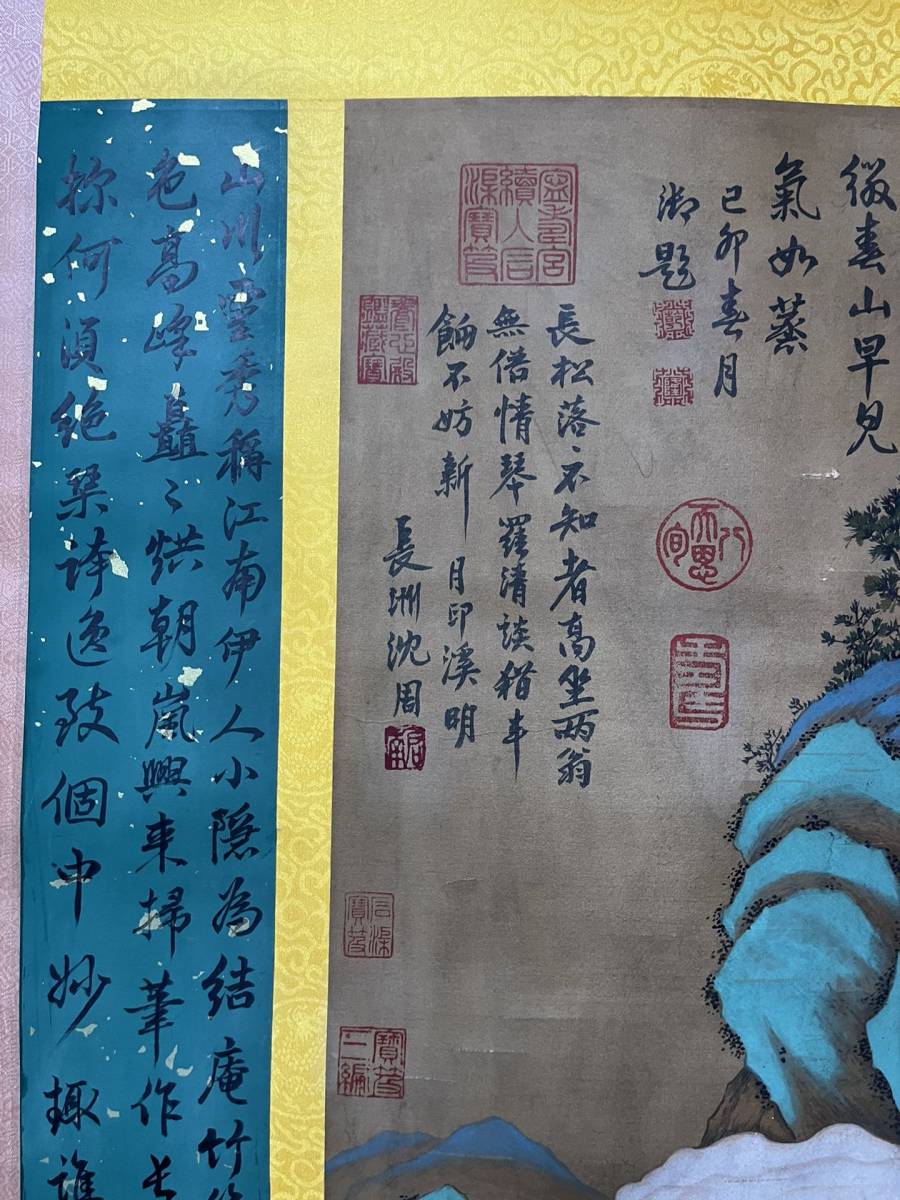 春山早見
氣如蒸
己卯春月
御題
寧壽宮
續入石
渠寶笈
長松落〻不知者高坐兩翁
無借情琴羅清談猶半
餉不妨新月印溪明
長洲沈周
石渠
寶笈
寶笈
三編
山川靈秀稱江南伊人小隱為結庵竹
色高峰矗〻烘朝嵐興來掃筆作長
何須絕誇逸致個中妙趣誰